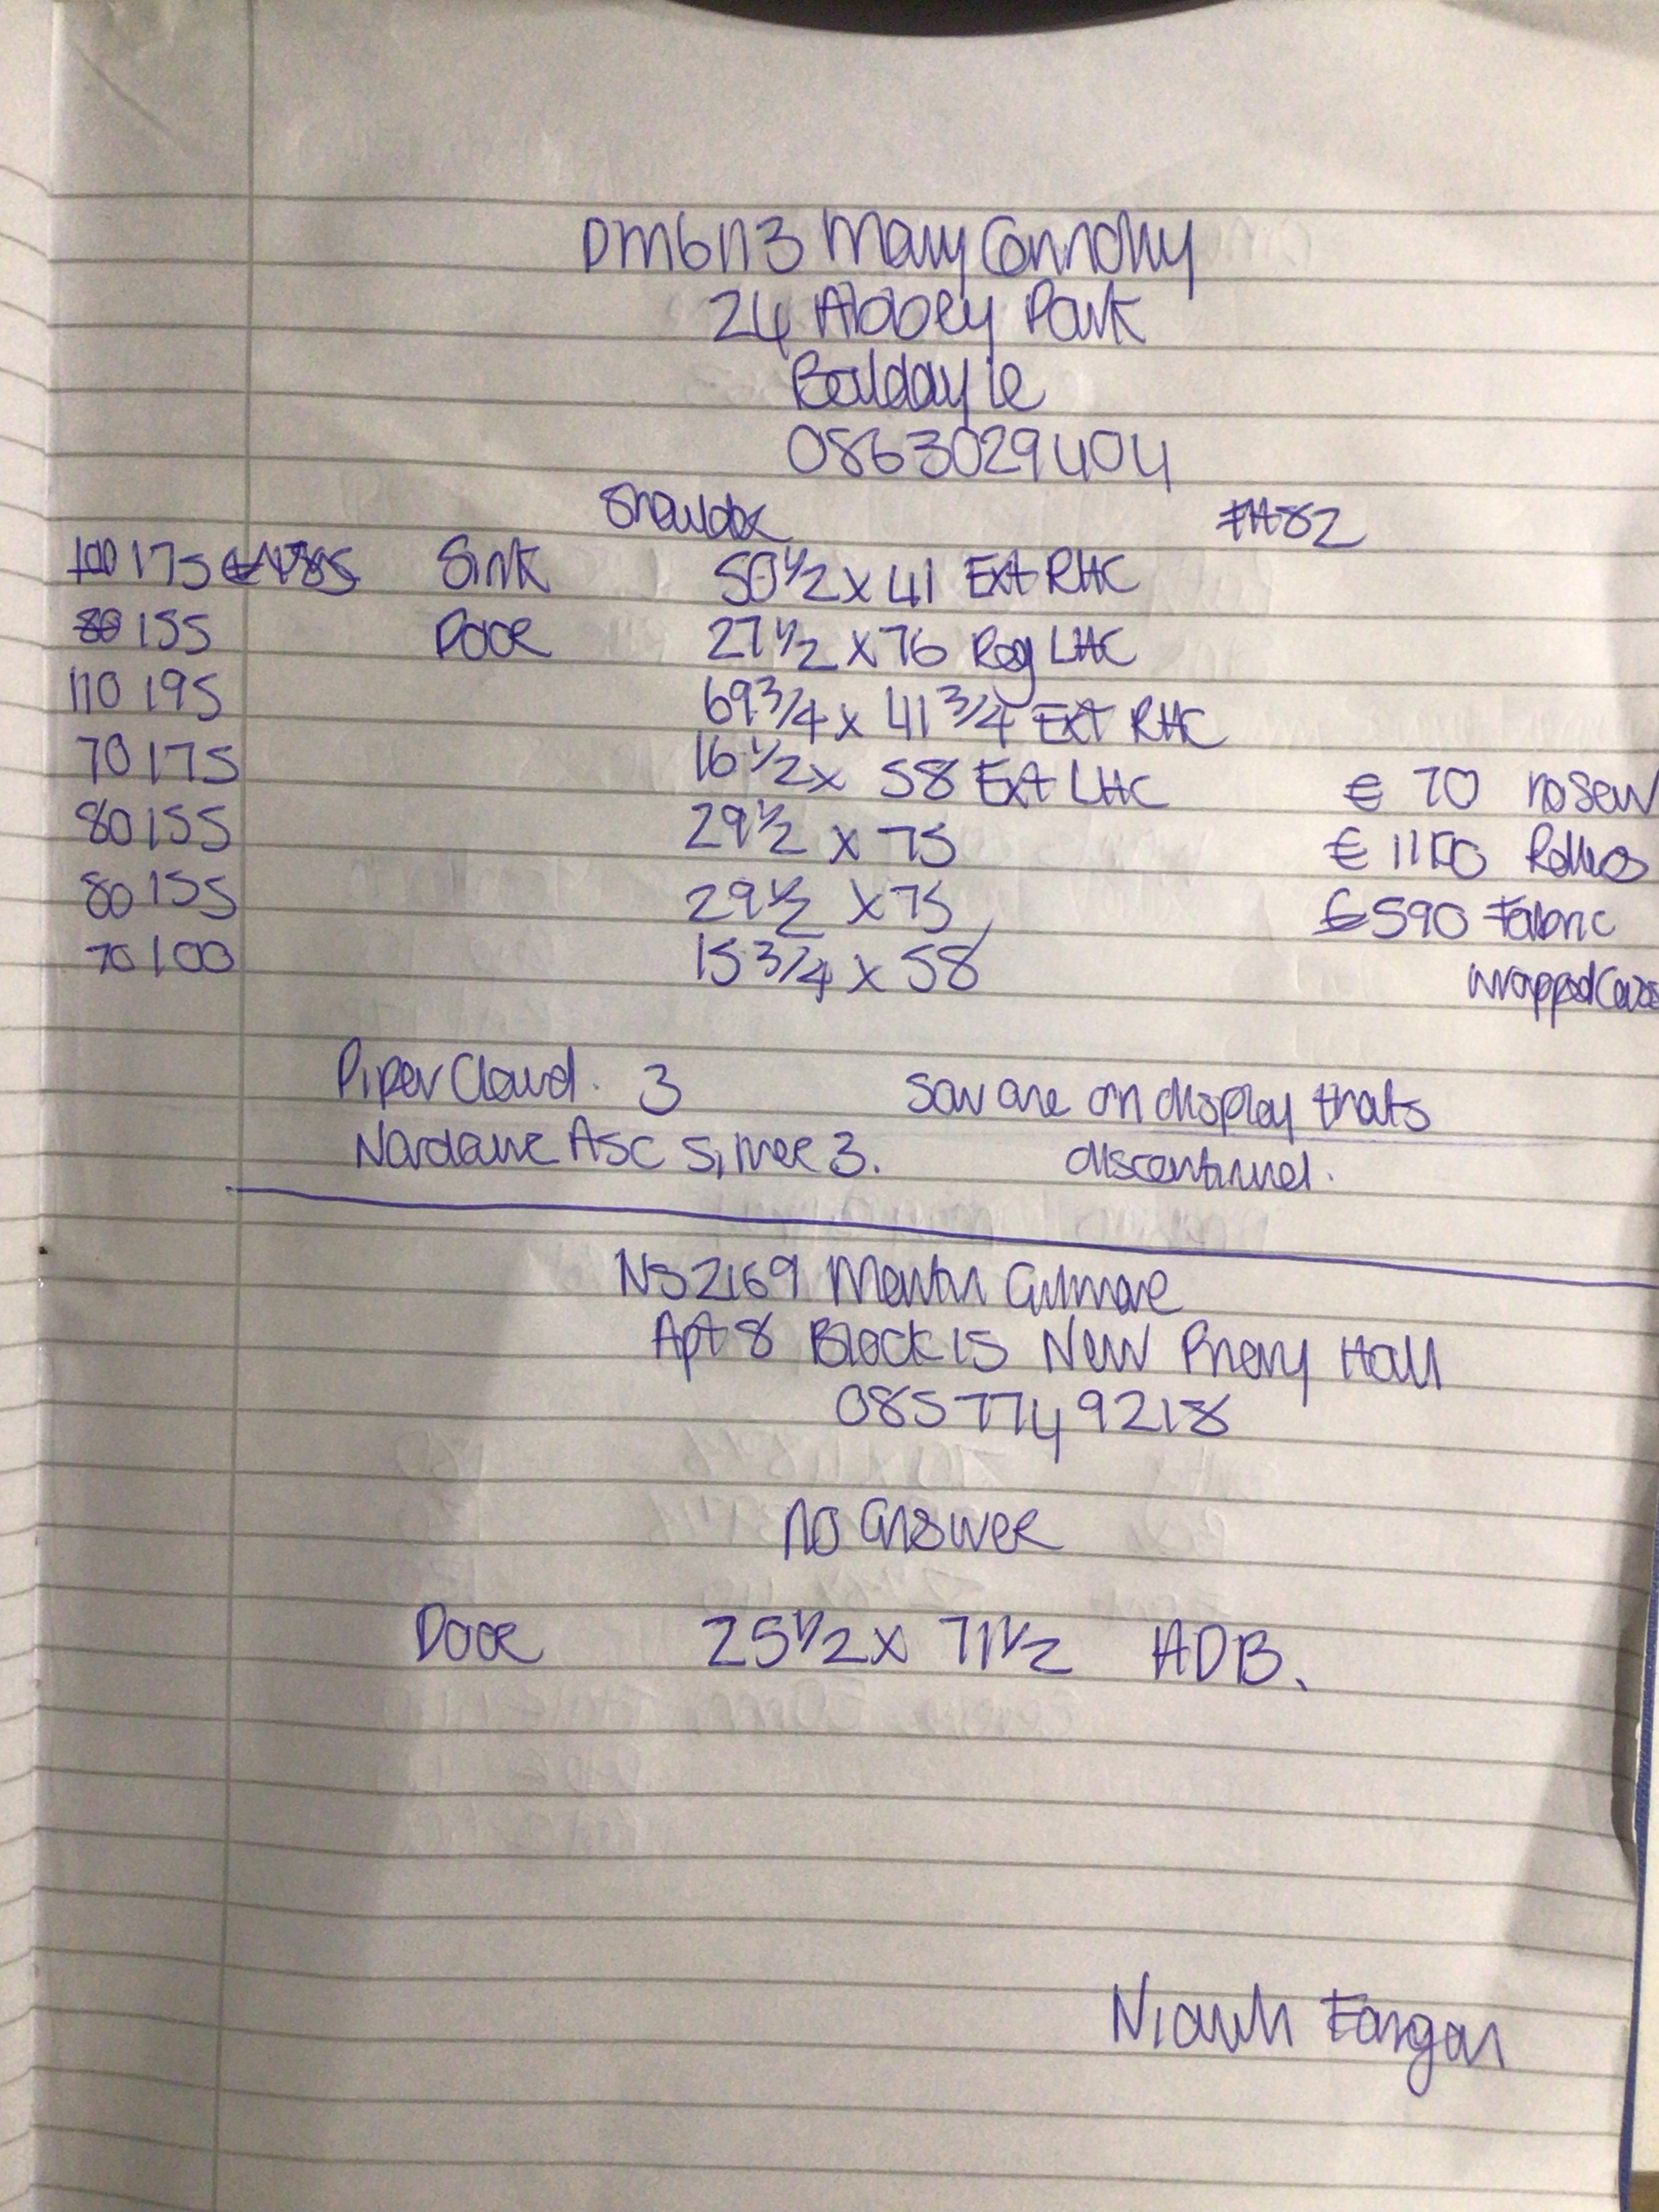 DM6113 Mary Connolly
24 Abbey Park
Baldoyle
0863029404
Should be #H82
100 175 €185 Sink 50 1/2 x 41 Ext RHC
80 155 Door 27 1/2 x 76 Reg LHC
110 195 69 3/4 x 41 3/4 Ext RHC
70 175 16 1/2 x 58 Ext LHC € 70 no sew
80 155 29 1/2 x 75 € 1150 Rollers
80 155 29 1/2 x 75 £590 Fabric
70 100 15 3/4 x 58 wrapped
Piper Cloud. 3 Saw one on display thats
ASC Silver 3. discontinued.
NS2169 Martin Gilmore
Apt 8 Block 15 New Priory Hall
0857749218
no answer
Door 25 1/2 x 71 1/2 ADB.
Niamh